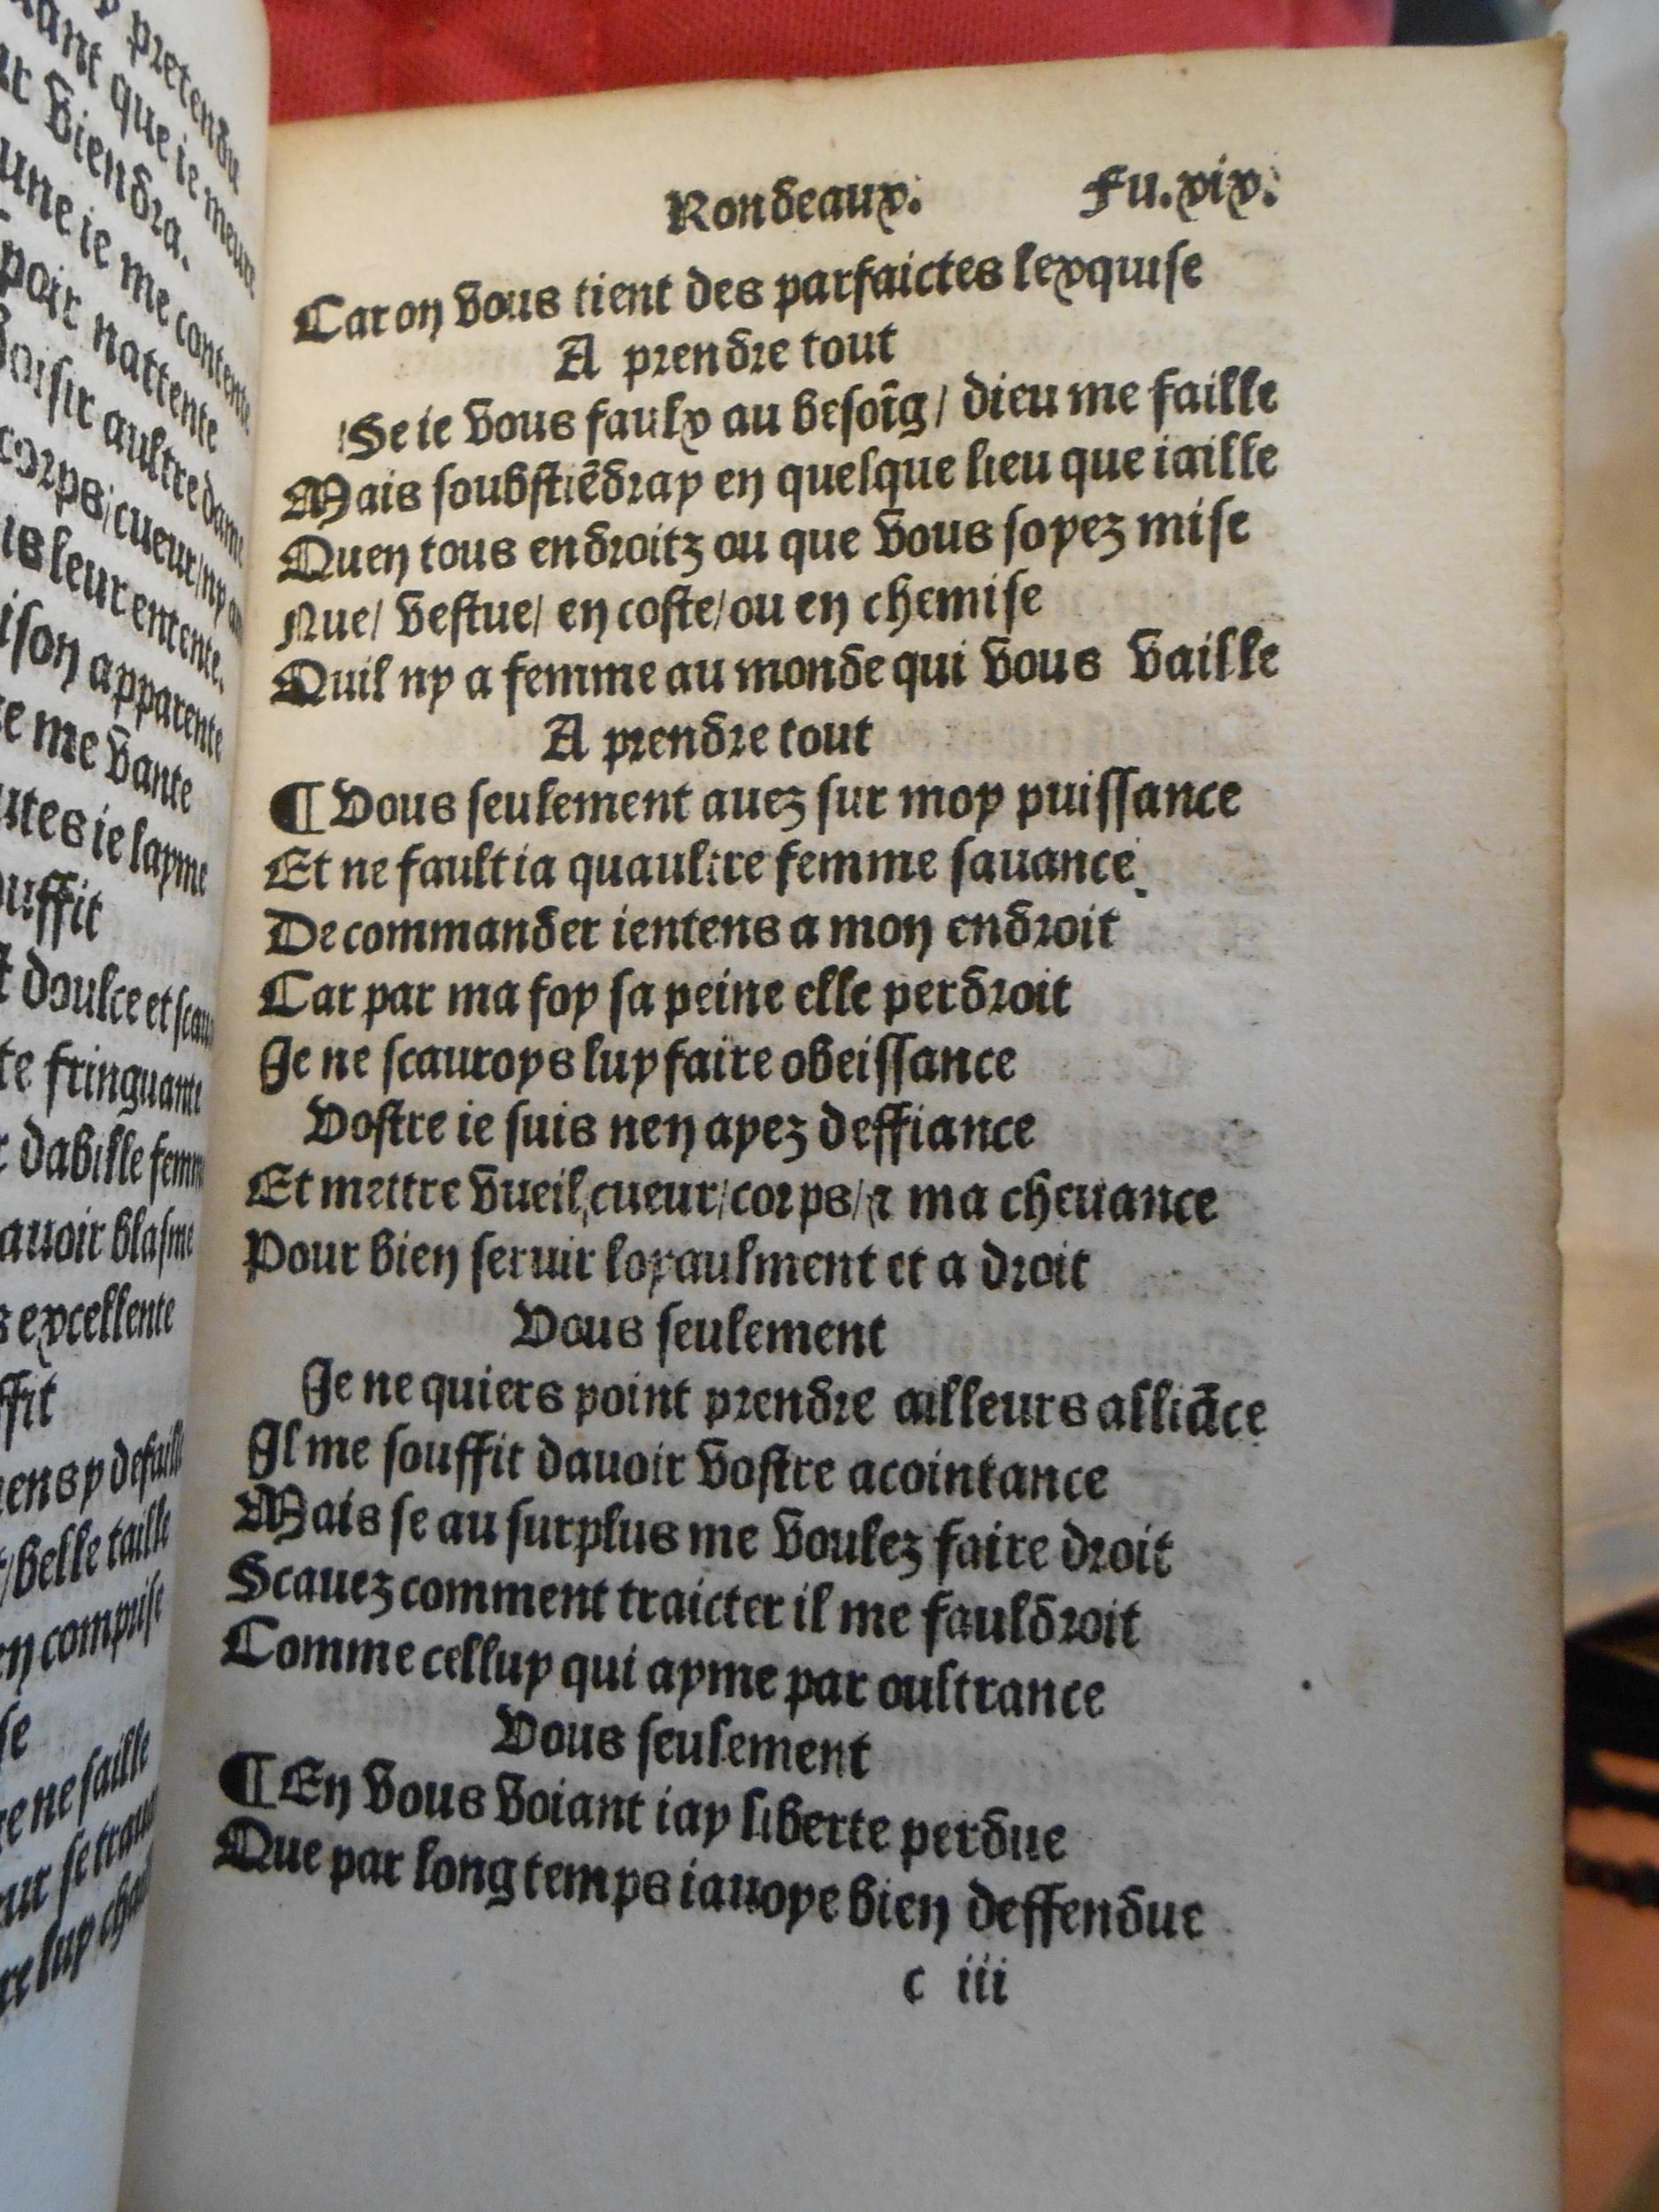 y pretendu
ant que ie meure
viendra.
une ie me contente
spoir nattente
oisir aultre dame
corps/cueur/ny
is leur entente.
ison apparente
e me vante
utes ie layme
ouffit
doulce et
te fringuante
dabille femme
auoir blasme
s excellente
ffit
ens y defaille
/belle taille
en comprise
se
e ne faille
re luy
Rondeaux. Fu.xix.
Car on vous tient des parfaictes lexquise
A prendre tout
Se ie vous faulx au besoĩg/ dieu me faille
Mais soubstiẽdray en quelque lieu que iaille
Quen tous endroitz ou que vous soyez mise
Nue/ vestue/ en coste/ou en chemise
Quil ny a femme au monde qui vous vaille
A prendre tout
¶ Vous seulement auez sur moy puissance
Et ne fault ia quaultre femme sauance
De commander ientens a mon endroit
Car par ma foy sa peine elle perdroit
Je ne scauroys luy faire obeissance
Vostre ie suis nen ayez deffiance
Et mettre vueil cueur/corps/⁊ ma cheuance
Pour bien seruir loyaulment et a droit
Vous seulement
Je ne quiers point prendre ailleurs alliãce
Il me souffit dauoir vostre acointance
Mais se au surplus me voulez faire droit
Scauez comment traicter il me fauldroit
Comme celluy qui ayme par oultrance
Vous seulement
¶ En vous voiant iay liberte perdue
Que par long temps iauoye bien deffendue
c iii